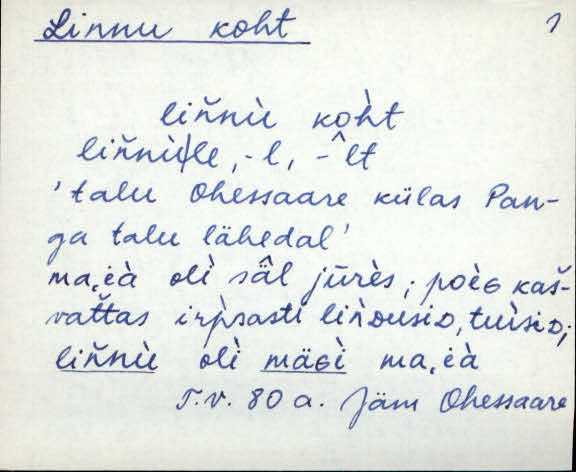 Linnu koht 1
liňnù kòht
liňnùle, -l, -̂lt
'talu Ohessaare külas Pan-
ga talu lähedal'
ma,ià olì sâl jūrès; poèɢ kaš-
vaťtas irpsasti linᴅusiᴅ, tuìsiᴅ;
liňnù olì mäɢì ma,ià
T.v. 80 a. Jäm Ohessaare